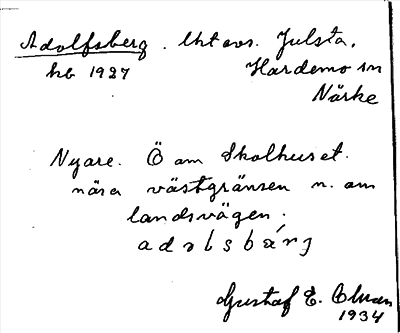 Adolfsberg. Uht avs. Julsta,
hb 1927 Hardemo sn
Närke
Nyare. Ö om Skolhuset.
nära västgränsen n. om
landsvägen.
adolsbärj
Gustaf E.
1934